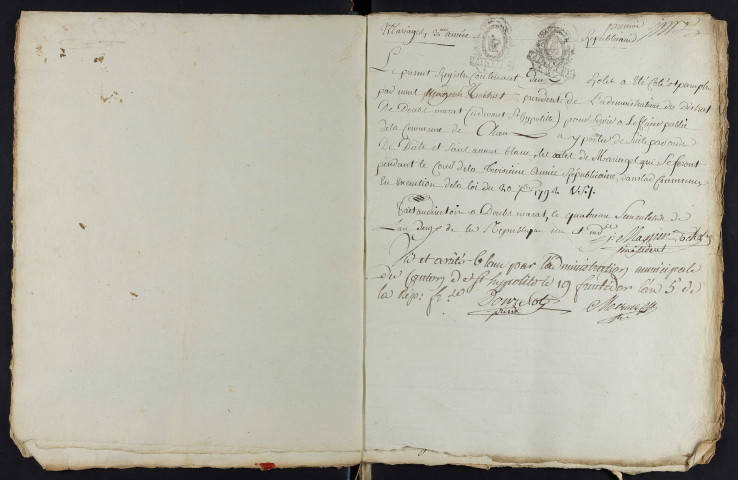 Mariages, 3me année premier
Républicaine
Le present Registre Contenant deux Rolet a Eté Coté et paraphé
par nous President de L'administration du district
De Doubs marat (cidevant St hypolite) pour Servir a L'officier public
de la Commune de Cham a y porter de Suite par ordre
De Date et Sans aucun blanc, les actes de Mariages qui Se feront
pendant le Cours de la Troisieme Année Républicaine, dans lad Commune
En Execution de la loi du 20 7bre 1792 V. St.
fait au directoire a Doubs marat, le quatrieme Sanculotide de
L'an deux de la République une et indle
president
Vu et arrêté Clans par l'administration municipale
du Canton de St hypolite le 19 fructidor l'an 5 de
la Rep: fse